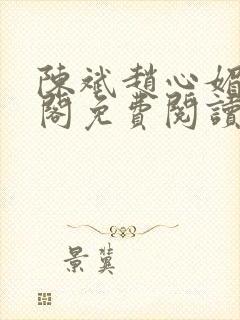 陳斌趙心媚
閣免費閱讀
景冀